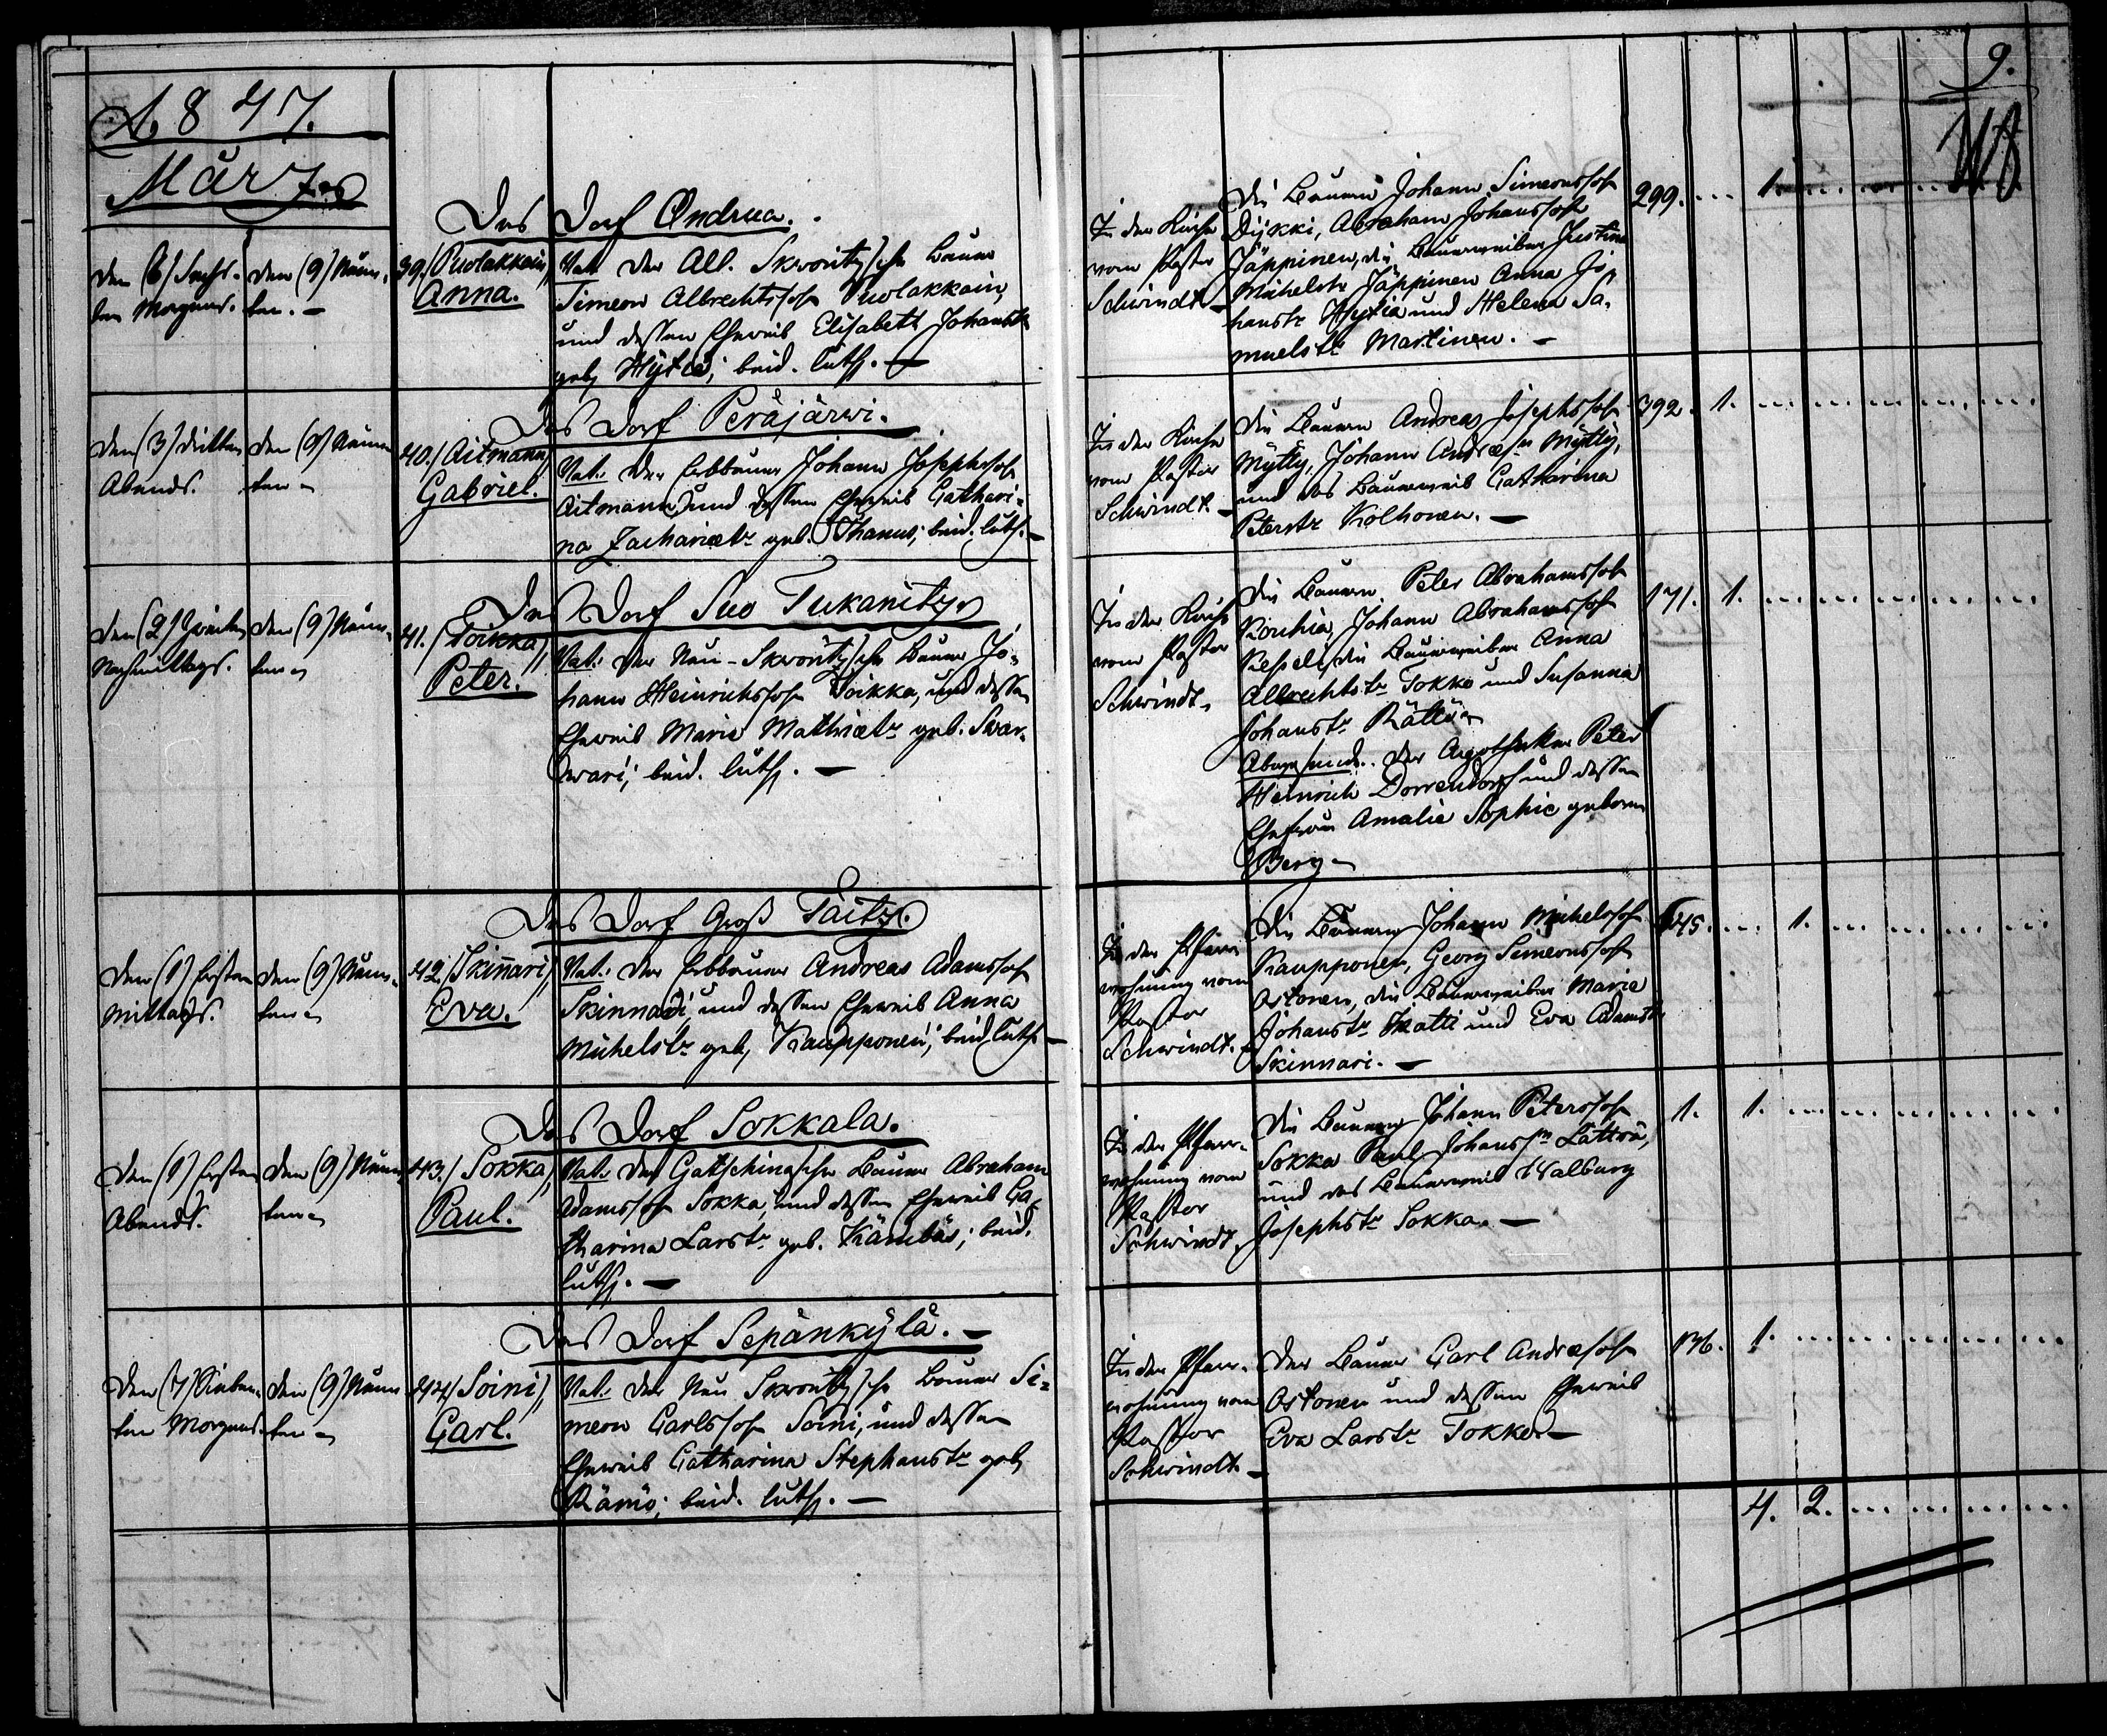 1847.
März.
9.
Das Dorf Ondrua.
den (6) Sechs-
ten Morgens.
den (9) Neun-
ten. —
39./ Puolakkain,
Anna.
Vat. Der All. Skworitzsche Bauer
Simeon Albrechtssohn Puolakkain,
und dessen Eheweib Elisabeth Johanstr
geb. Hytiä; beid. luth. —
In der Kirche
vom Pastor
Schwindt —
Die Bauern Johann Simeonssohn
Dijkki, Abraham Johanssohn
Jäppinen, die Bauerweiber Justina
Michelstr Jäppinen Anna Jo-
hanstr Hytiä und Helena Sa-
muelstr Martinen. —
299. 1.
Das Dorf Peräjärwi.
Den (3) dritten
Abends.
den (9) Neun-
ten —
40./ Aitmann,
Gabriel.
Vat. Der Erbbauer Johann Josephssohn
Aitmann und dessen Eheweib Cathari-
na Zachariætr geb. Thanus; beid. luth. —
In der Kirche
vom Pastor
Schwindt —
Die Bauern Andreas Josephssohn
Mytty, Johann Andreæsn Mytty,
und das Bauerweib Catharina
Peterstr Kolhonen. —
392. 1.
Das Dorf Suo Tukanitz.
Den (2) Zweiten
Nachmittags.
den (9) Neun-
ten —
41./ Toikka,
Peter.
Vat. Der Neu-Skworitzsche Bauer Jo-
hann Heinrichssohn Toikka, und dessen
Eheweib Maria Mathiætr geb. Swar-
wari; beid. luth. —
In der Kirche
vom Pastor
Schwindt,
Die Bauern Peter Abrahamssohn
Korhia, Johann Abrahamssohn
Kesseli, die Bauerweiber Anna
Albrechtstr Tokko und Susanna
Johanstr Rättö —
Abwesend. Der Apotheker Peter
Heinrich Dorrendorf und dessen
Ehefrau Amalie Sophie geborne
Berg —
171. 1.
Das Dorf Groß Taitz.
Den (1) Ersten
Mittags.
den (9) Neun-
ten —
42./ Skinnari,
Eva.
Vat. Der Erbbauer Andreas Adamssohn
Skinnari, und dessen Eheweib Anna
Michelstr geb. Kaupponen; beid. luth —
In der Pfarr-
wohnung vom
Pastor
Schwindt. —
Die Bauern Johann Michelssohn
Kaupponen, Georg Simeonssohn
Ostonen, die Bauerweiber Maria
Johanstr Katti und Eva Adamstr
Skinnari. —
145. 1.
Das Dorf Sokkala.
Den (1) Ersten
Abends.
den (9) Neun-
ten —
43./ Sokka,
Paul.
Vat. Der Gatschinasche Bauer Abraham
Adamssohn Sokka, und dessen Eheweib Ca-
tharina Larstr geb. Kämäräs; beid.
luth. —
In der Pfarr-
wohnung vom
Pastor
Schwindt,
Die Bauern Johann Peterssohn
Sokka Paul Johanssn Lättrö,
und das Bauerweib Walburg
Josephstr Sokka. —
1. 1.
Das Dorf Sepänkylä. —
Den (7) Sieben-
ten Morgens.
den (9) Neun-
ten —
44./ Soini,
Carl.
Vat. Der Neu Skworitzsche Bauer Si-
meon Carlssohn Soini, und dessen
Eheweib Catharina Stephanstr geb.
Rämö; beid. luth. —
In der Pfarr-
wohnung vom
Pastor
Schwindt —
Der Bauer Carl Andreæsohn
Ostonen und dessen Eheweib
Eva Larstr Tokko —
136. 1.
4. 2.